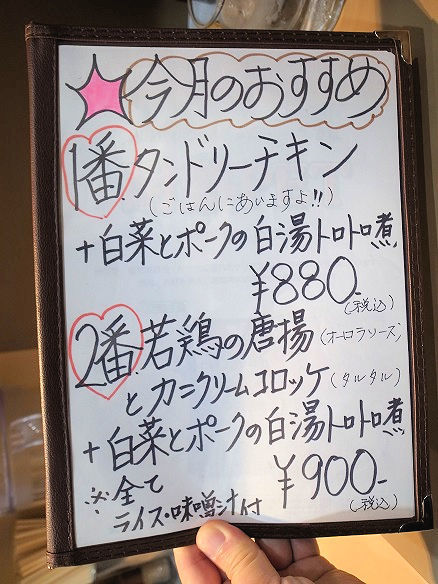 今月のおすすめ
1番 タンドリーチキン
(ごはんにあいますよ!!)
+白菜とポークの白湯トロトロ煮
¥880-
(税込)
2番 若鶏の唐揚(オーロラソース)
とカニクリームコロッケ(タルタル)
+白菜とポークの白湯トロトロ煮
¥900-
(税込)
※全て
ライス・味噌汁付